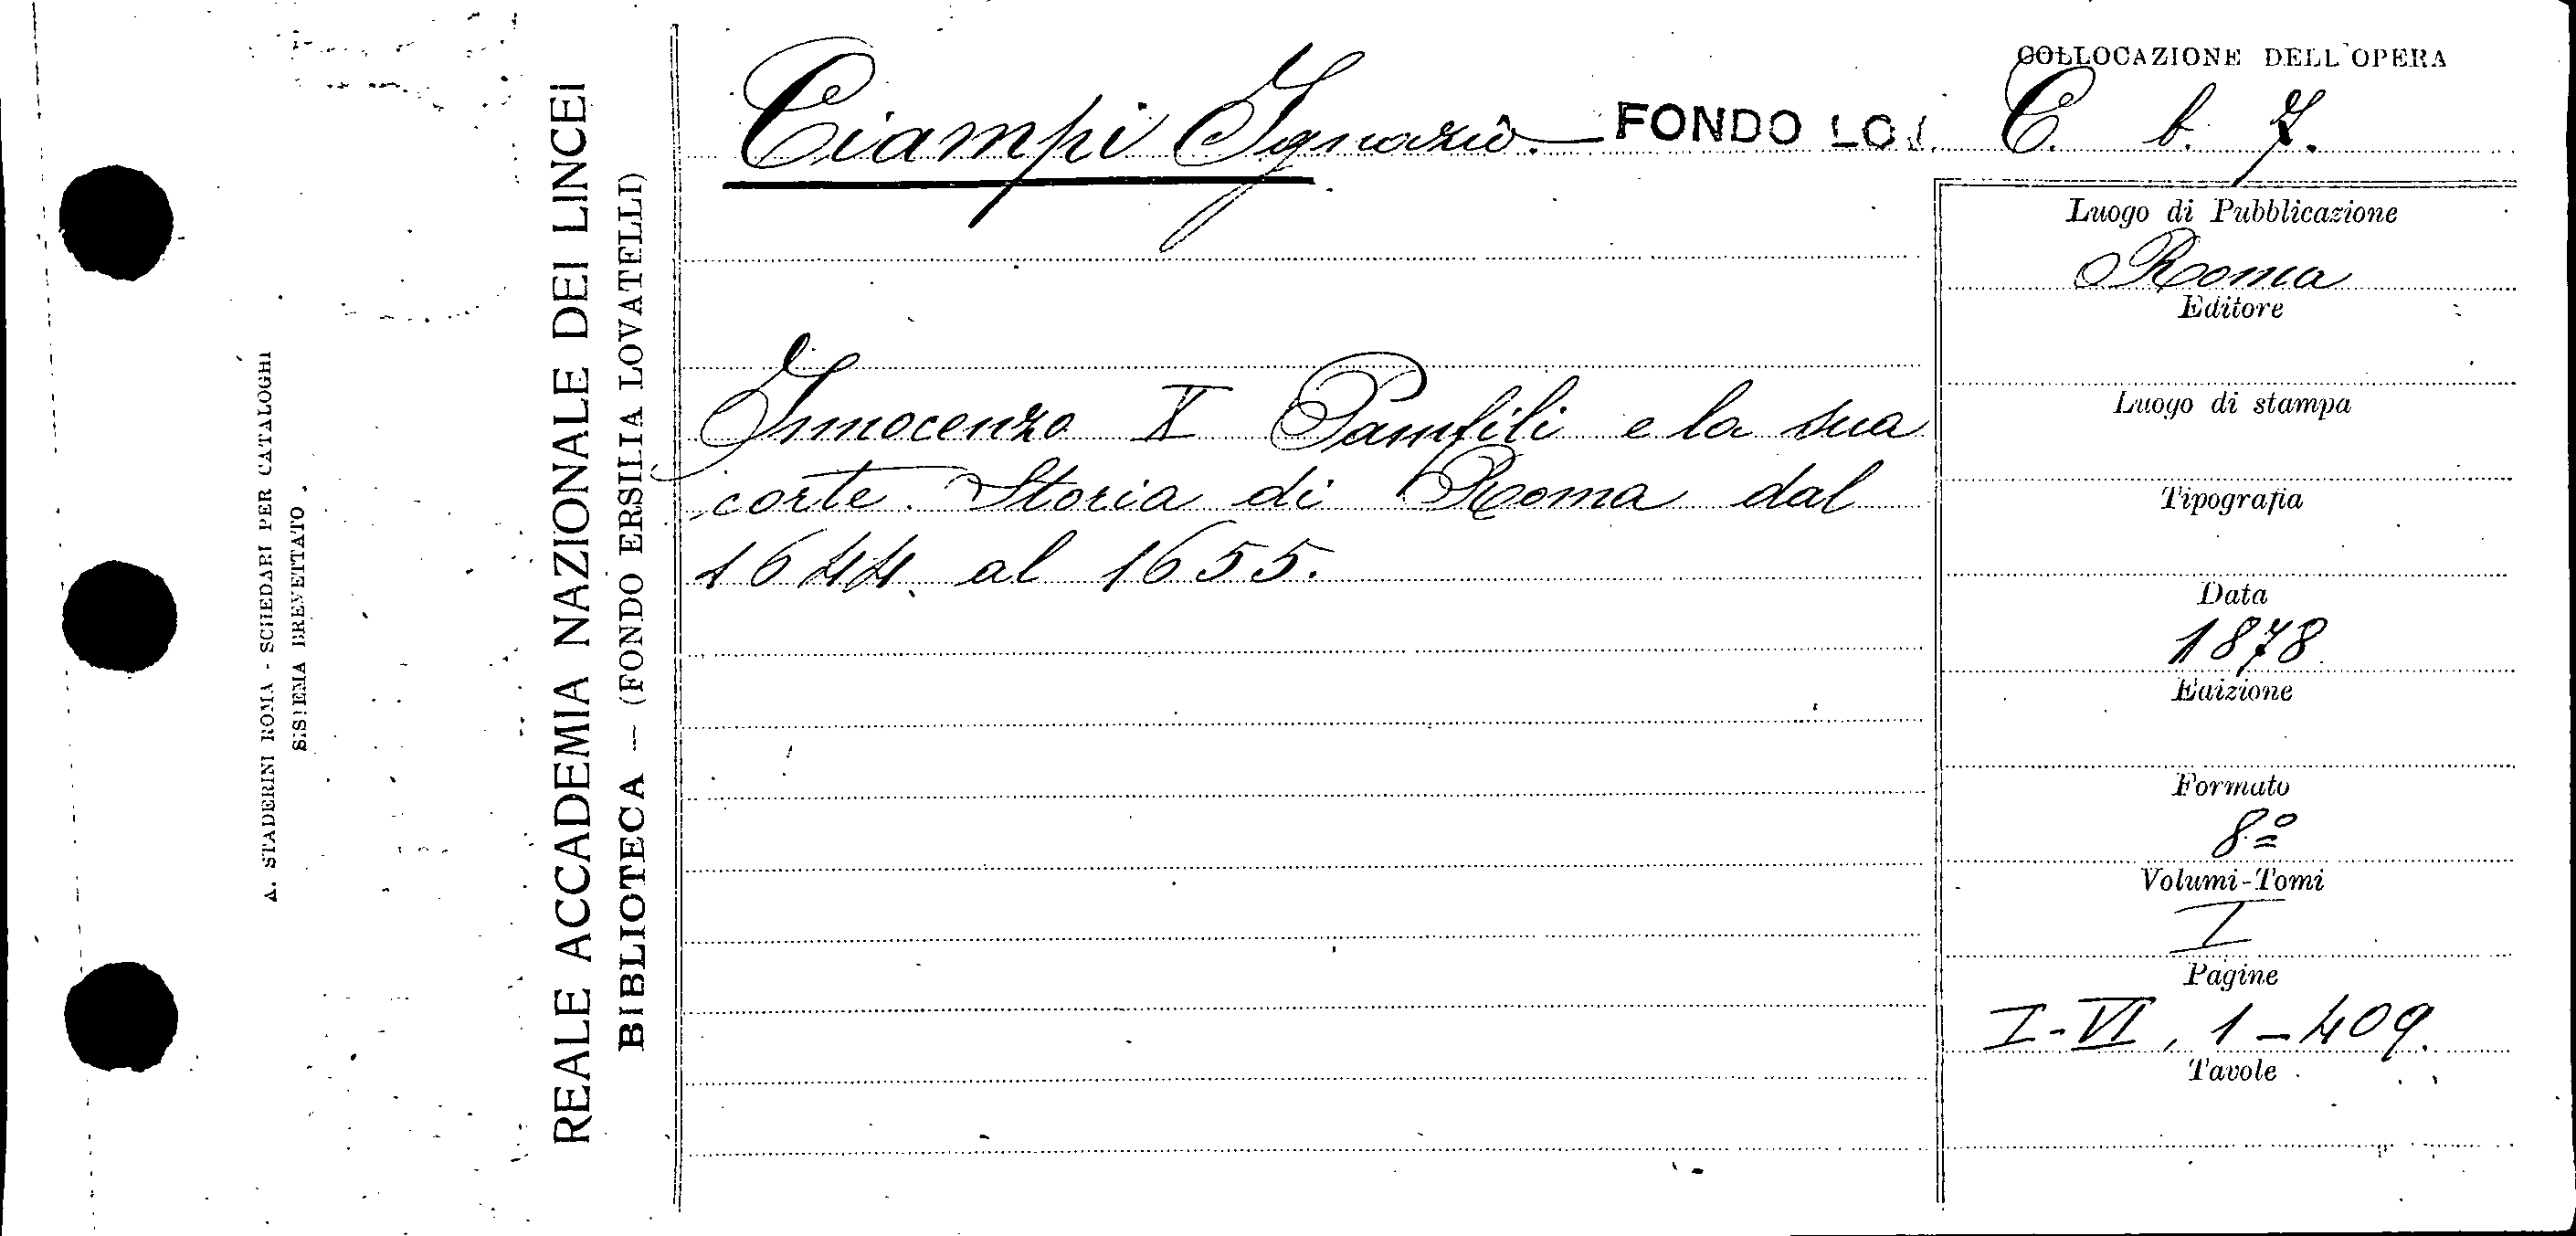 A. STADERINI ROMA - SCHEDARI PER CATALOGHI
SISTEMA BREVETTATO
REALE ACCADEMIA NAZIONALE DEI LINCEI
BIBLIOTECA — (FONDO ERSILIA LOVATELLI)
Ciampi Ignazio. FONDO
COLLOCAZIONE DELL'OPERA
C. b. 7.
Innocenzo X Pamfili e la sua
corte. Storia di Roma dal
1644 al 1655.
Luogo di Pubblicazione
Roma
Editore
Luogo di stampa
Tipografia
Data
1878
Edizione
Formato
8º
Volumi-Tomi
I
Pagine
I-VI, 1-409.
Tavole